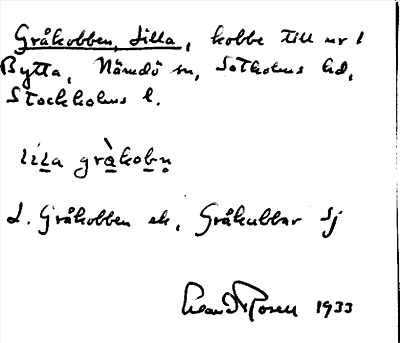 Gråkobben, Lilla, kobbe till nr 1
Bytta, Nämdö sn, Sotholms hd,
Stockholms l.
lila gråkobn
L. Gråkobben ek, Gråkubbar Sj
1933